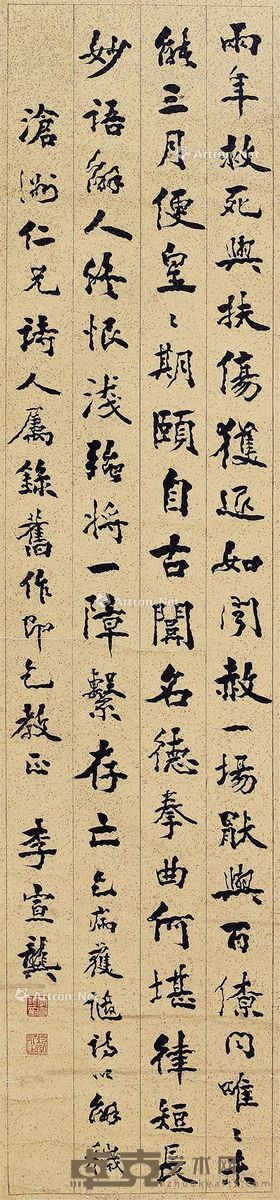 兩年救死與扶傷獲返如聞赦一場厭與百僚同唯〻未
能三月便皇〻期頤自古關名德拳曲何堪律短長
妙語解人終恨淺強將一障繫存亡乞病獲請詩以解穢
滄洲仁兄詩人屬錄舊作即乞教正 李宣龔
Artron.Net
卓克艺术网